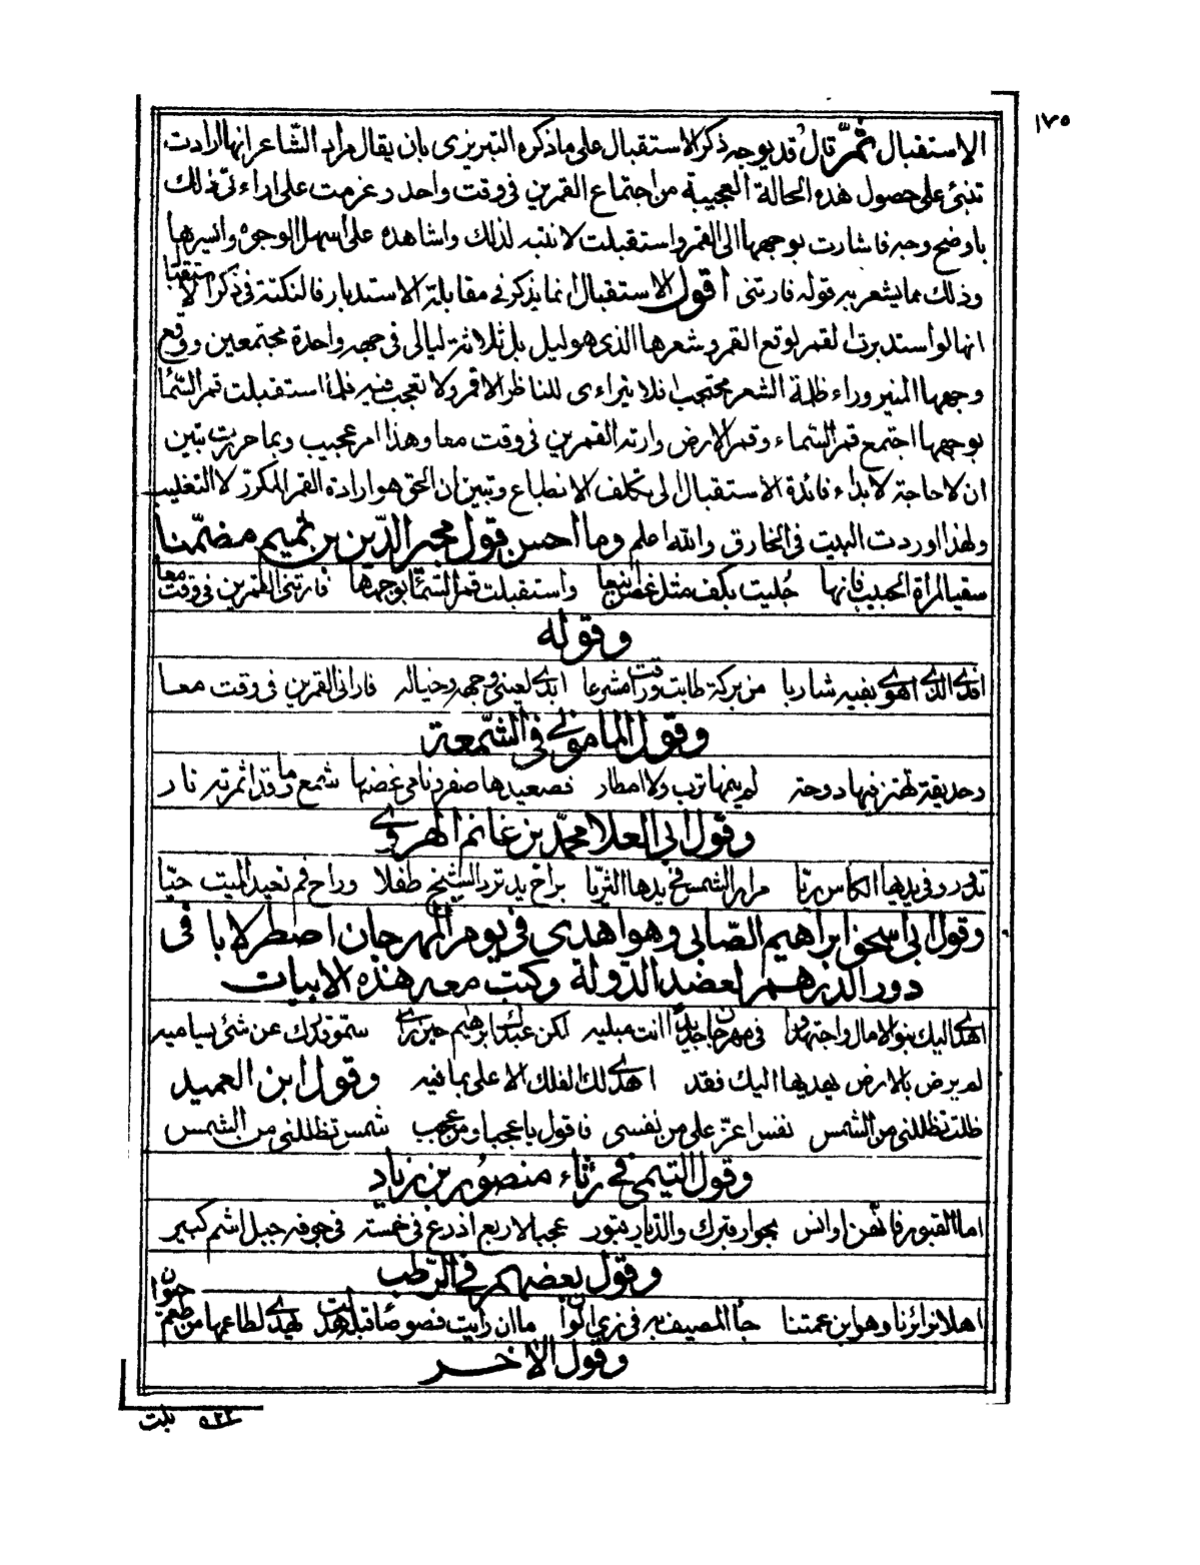 ١٧٥
الاستقبال ثمّ قال قد يوجه ذكر الاستقبال على ما ذكره التبريزى بان يقال مراد الشاعر انها ارادت
تنبئ على حصول هذه الحالة العجيبة من اجتماع القمرين فى وقت واحد وعزمت على اراءتى ذلك
باوضح وجه فاشارت بوجهها الى القمر واستقبلت لانتبه لذلك واشاهده على اسهل الوجوه وايسرها
وذلك مما يشعر به قوله فارتنى اقول الاستقبال انما يذكر فى مقابلة الاستدبار فالنكتة فى ذكر الاستقبال
انها لو استدبرت القمر لوقع القمر وشعرها الذى هو ليل بل ثلاثة ليالى فى جهه واحدة مجتمعين ووقع
وجهها المنير وراء ظلمة الشعر محتجبا فلا يتراءى للناظر الا قمر ولا تعجب فيه فلما استقبلت قمر السّما
بوجهها اجتمع قمر السّماء وقمر الارض وارته القمرين فى وقت معا وهذا امر عجيب وبما حررت تبين
ان لا حاجة لابداء فائدة الاستقبال لى تكلف الانطباع وتبين ان الحق هو ارادة القمر المكرر لا التغليب
ولهذا اوردت البيت فى الخارق والله اعلم وما احسن قول مجير الدّين بن تميم مضمّنا
سقيا لمراة الحبيب فانها جُليت بكف مثل غصن اينعا واستقبلت قمر السّما بوجهها فارتنى القمرين فى وقت معا
وقوله
افدى الذى اهوى بفيه شاربا من بركة طابت ورقت مشرعا ابدى لعينى وجهه وخياله فارانى القمرين فى وقت معا
وقول المامونى فى الشّمعة
وحديقة تهتز فيها دوحة لم ينمها ترب ولا امطار فصعيدها صفر ونامى غصنها شمع وما قد اثمرته نار
وقول ابى العلا محمّد بن غانم الهروى
تدور وفى يديها الكاس ريّا مرار الشمس فى يدها الثريّا براح يد ترد الشيخ طفلا وراح فم تعيد الميت حيّا
وقول ابى اسحق ابراهيم الصّابى وهو اهدى فى يوم المهرجان اصطرلابا فى
دور الدرهم لعضد الدّولة وكتب معه هذه الابيات
اهدى اليك بنو الامال واجتهدوا فى مهرجان جديد انت مبليه لكن عبدك ابرهيم حين راى سمّو قدرك عن شئ يساميه
لم يرض بالارض يهديها اليك فقد اهدى لك الفلك الاعلى بما فيه وقول ابن العميد
ظلت تظللنى من الشمس نفس اعزّ على من نفسى فاقول يا عجبا ومن عجب شمس تظللنى من الشمس
وقول التيمى فى رثاء منصور بن زياد
اما القبور فانّهن اوانس بجوار قبرك والديار قبور عجبا لاربع اذرع فى خمسة فى جوفه جبل اشم كبير
وقول بعضهم فى الرّطب
اهلا بزائرنا وهو ابن عمتنا جا المصيف به فى زى الوان ما ان رايت فصوصا قبل هذى بدت تهدى لطاعمها من طعم حلوان
وقول الاخر
٥٢٢ بلت